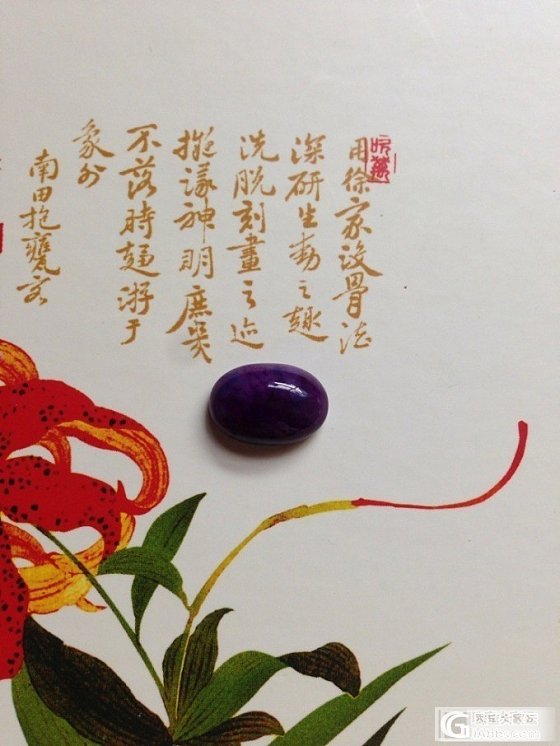 用徐家没骨法
深研生動之趣
洗脱刻畫之迹
擬議神明庶几
不落時趨游于
象外
南田抱甕客